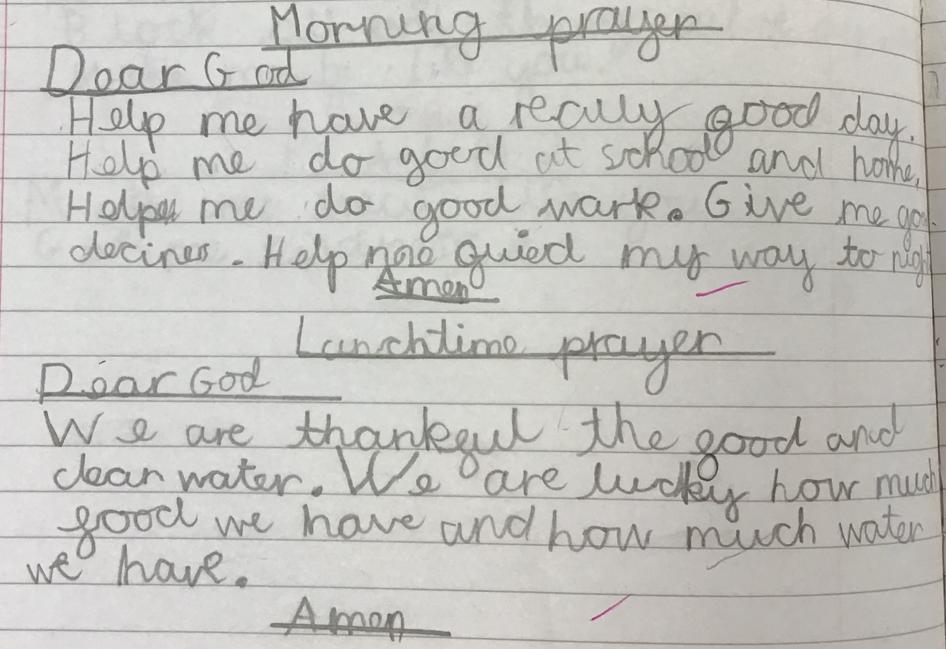 Morning prayer
Dear God
Help me have a really good day.
Help me do good at school and home.
Help me do good work. Give me go
decines. Help me guied my way to nigh
Amen
Lunchtime prayer
Dear God
We are thankful the good and
clean water. We are lucky how much
good we have and how much water
we have.
Amen